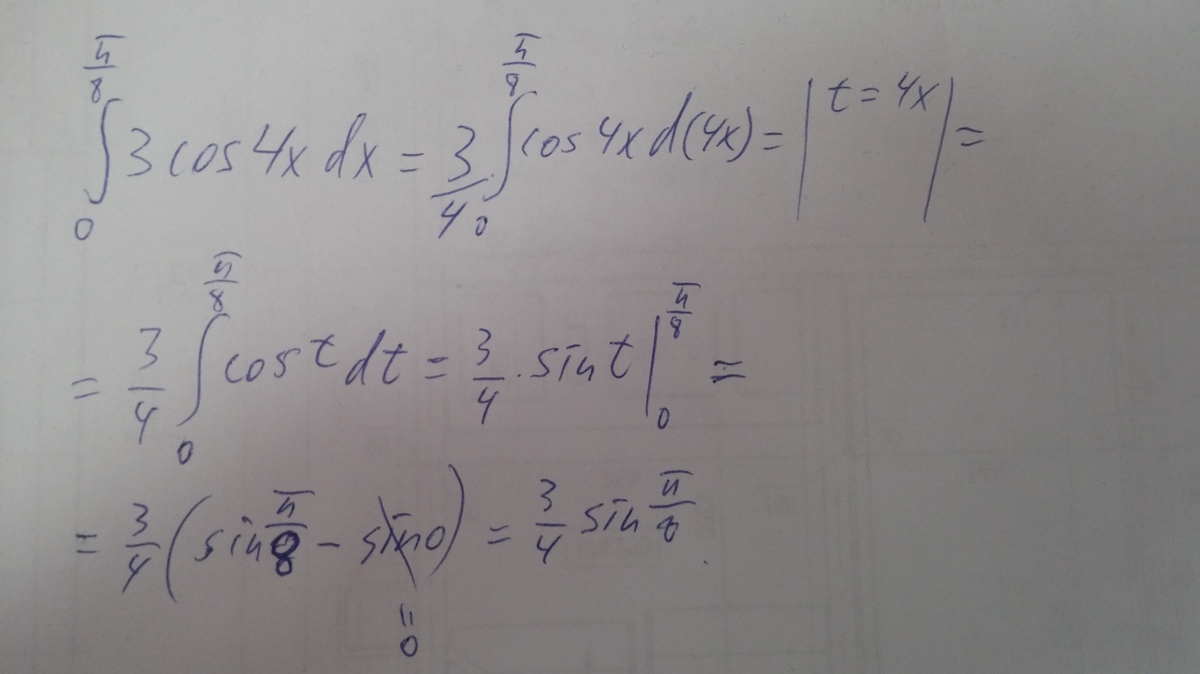 ∫₀^(π/8) 3 cos 4x dx = 3/4 · ∫₀^(π/8) cos 4x d(4x) = | t = 4x | =
= 3/4 ∫₀^(π/8) cos t dt = 3/4 · sin t |₀^(π/8) =
= 3/4 (sin π/8 − sin 0) = 3/4 sin π/8 .
॥
0